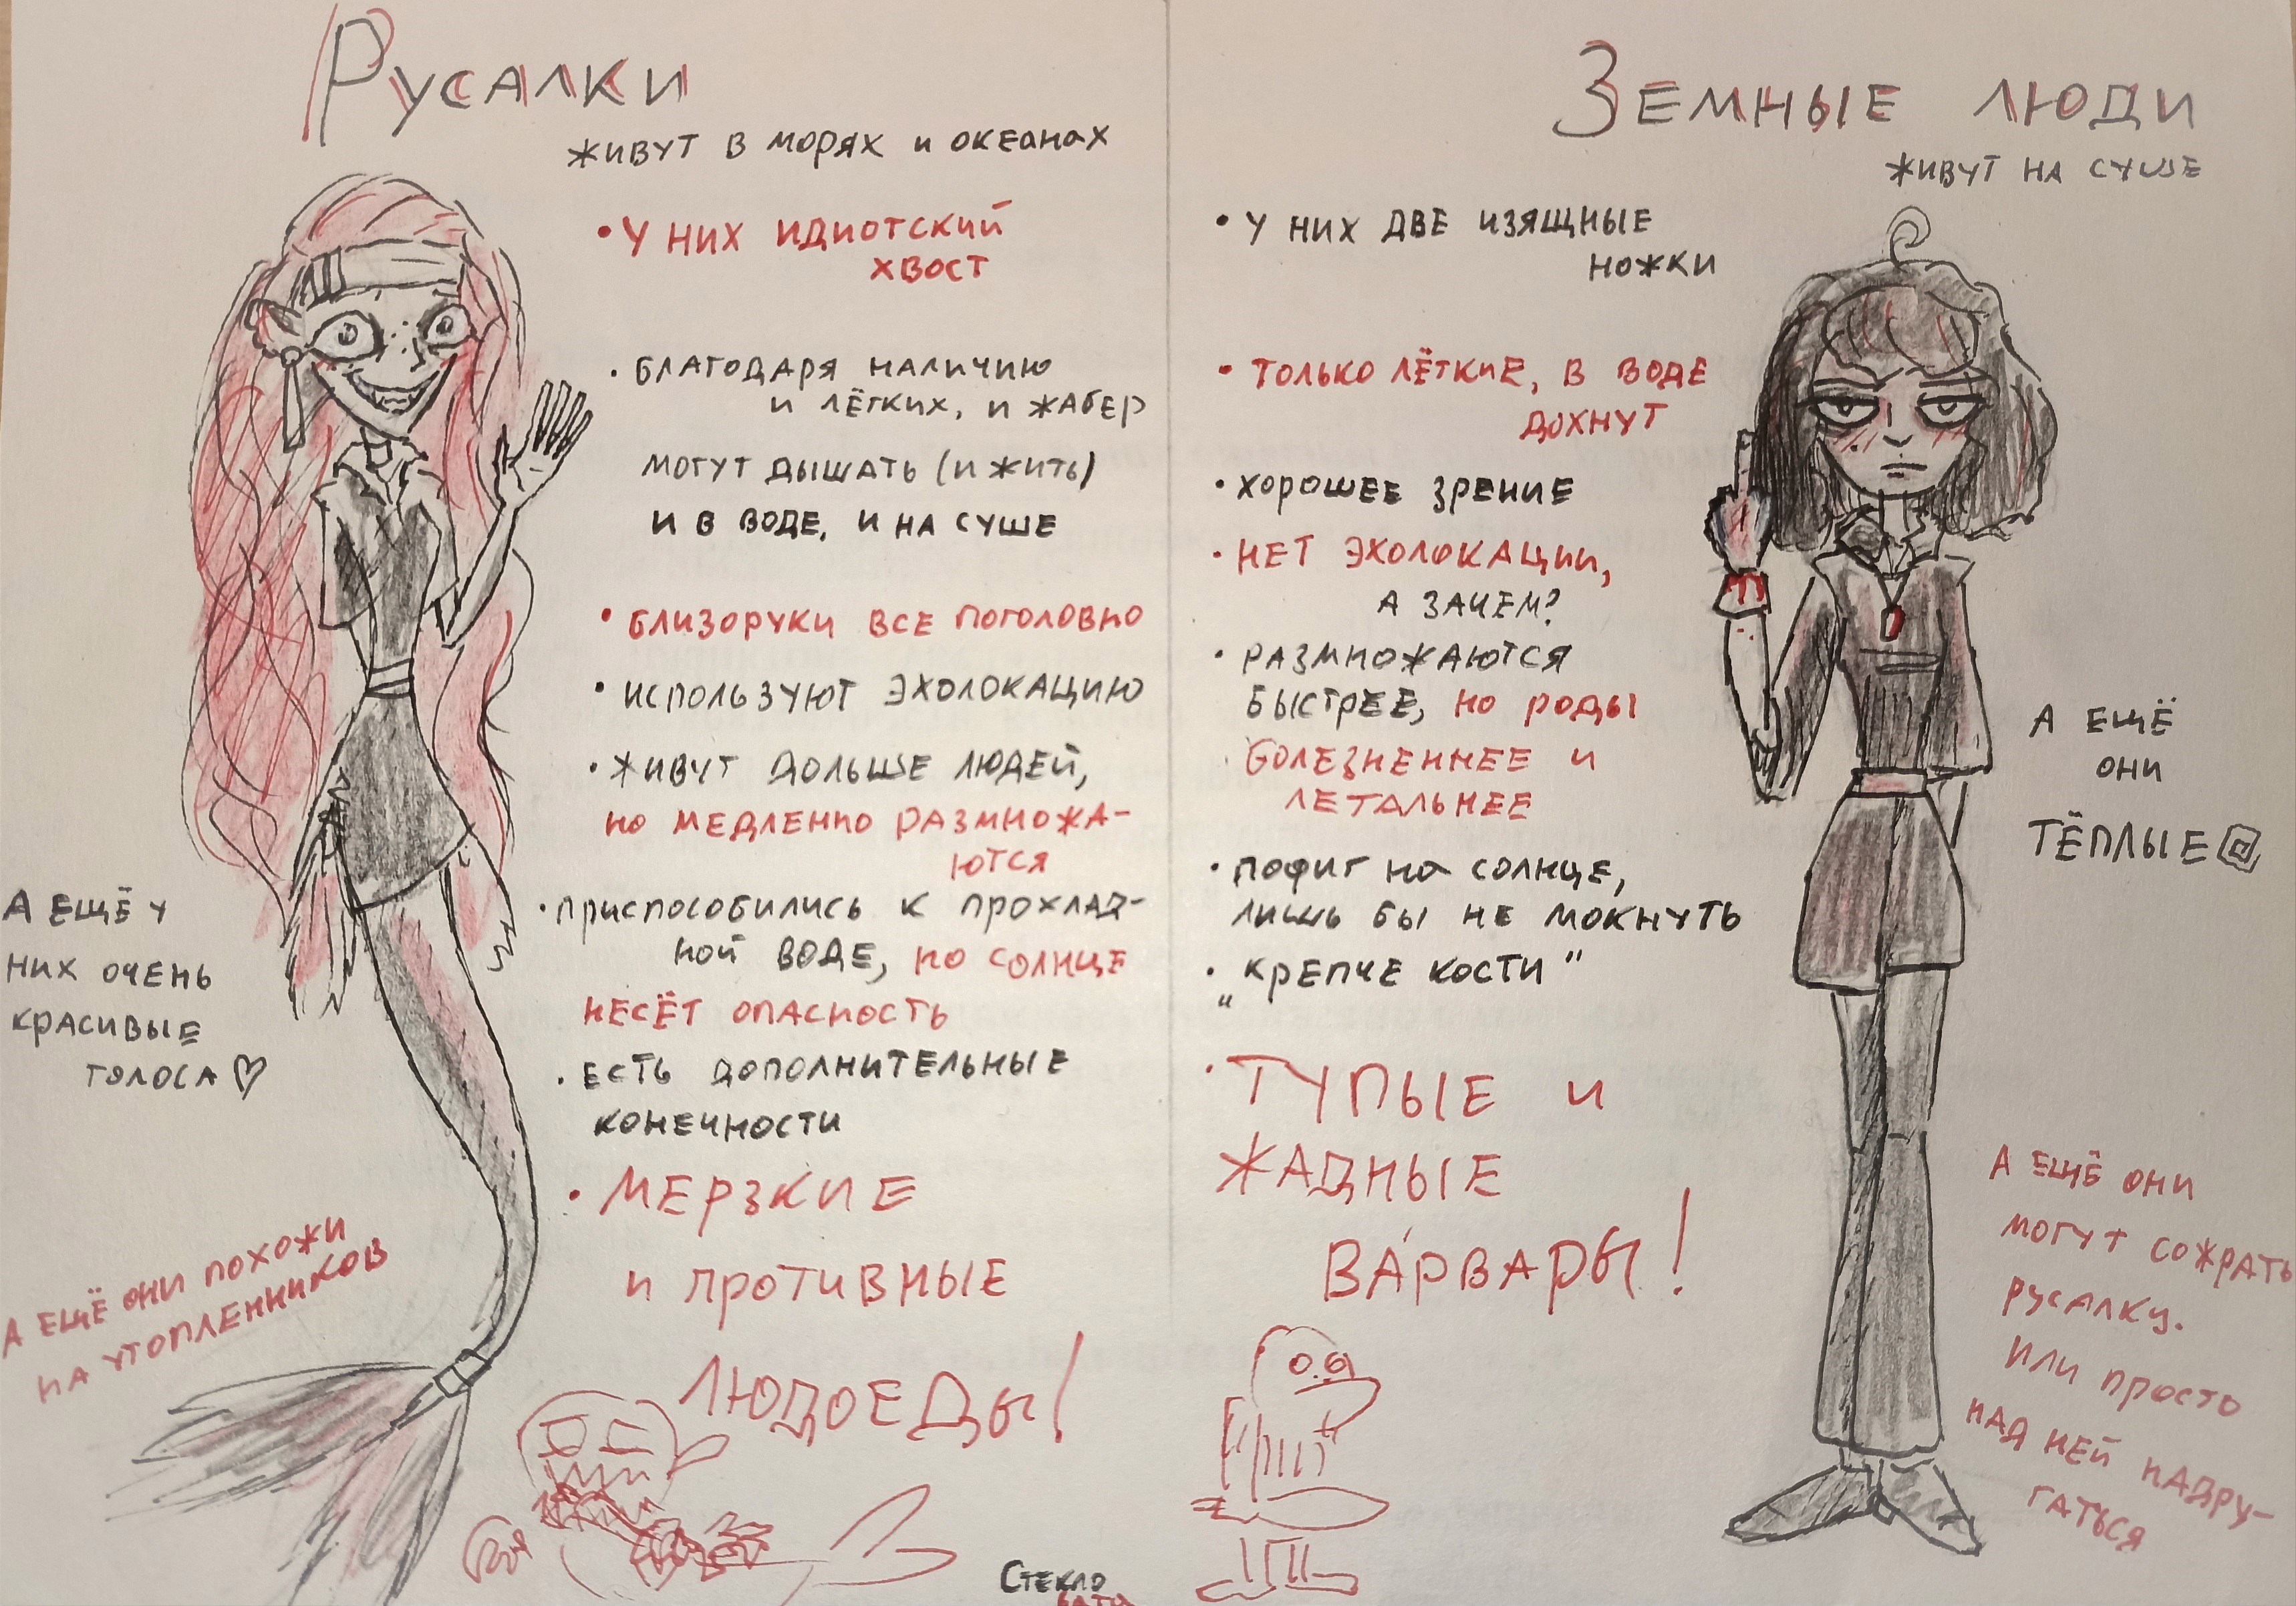 Русалки
живут в морях и океанах
• У них идиотский
хвост
• благодаря наличию
и лёгких, и жабер
могут дышать (и жить)
и в воде, и на суше
• близоруки все поголовно
• используют эхолокацию
• живут дольше людей,
но медленно размножа-
ются
• приспособились к прохлад-
ной воде, но солнце
несёт опасность
• есть дополнительные
конечности
• мерзкие
и противные
людоеды!
А ещё у
них очень
красивые
голоса ♡
А ещё они похожи
на утопленников
Стекло
вата
Земные люди
живут на суше
• У них две изящные
ножки
• только лёгкие, в воде
дохнут
• хорошее зрение
• нет эхолокации,
а зачем?
• размножаются
быстрее, но роды
болезненнее и
летальнее
• пофиг на солнце,
лишь бы не мокнуть
• „крепче кости"
• Тупые и
жадные
ва́рвары!
А ещё
они
тёплые
А ещё они
могут сожрать
русалку.
Или просто
над ней надру-
гаться